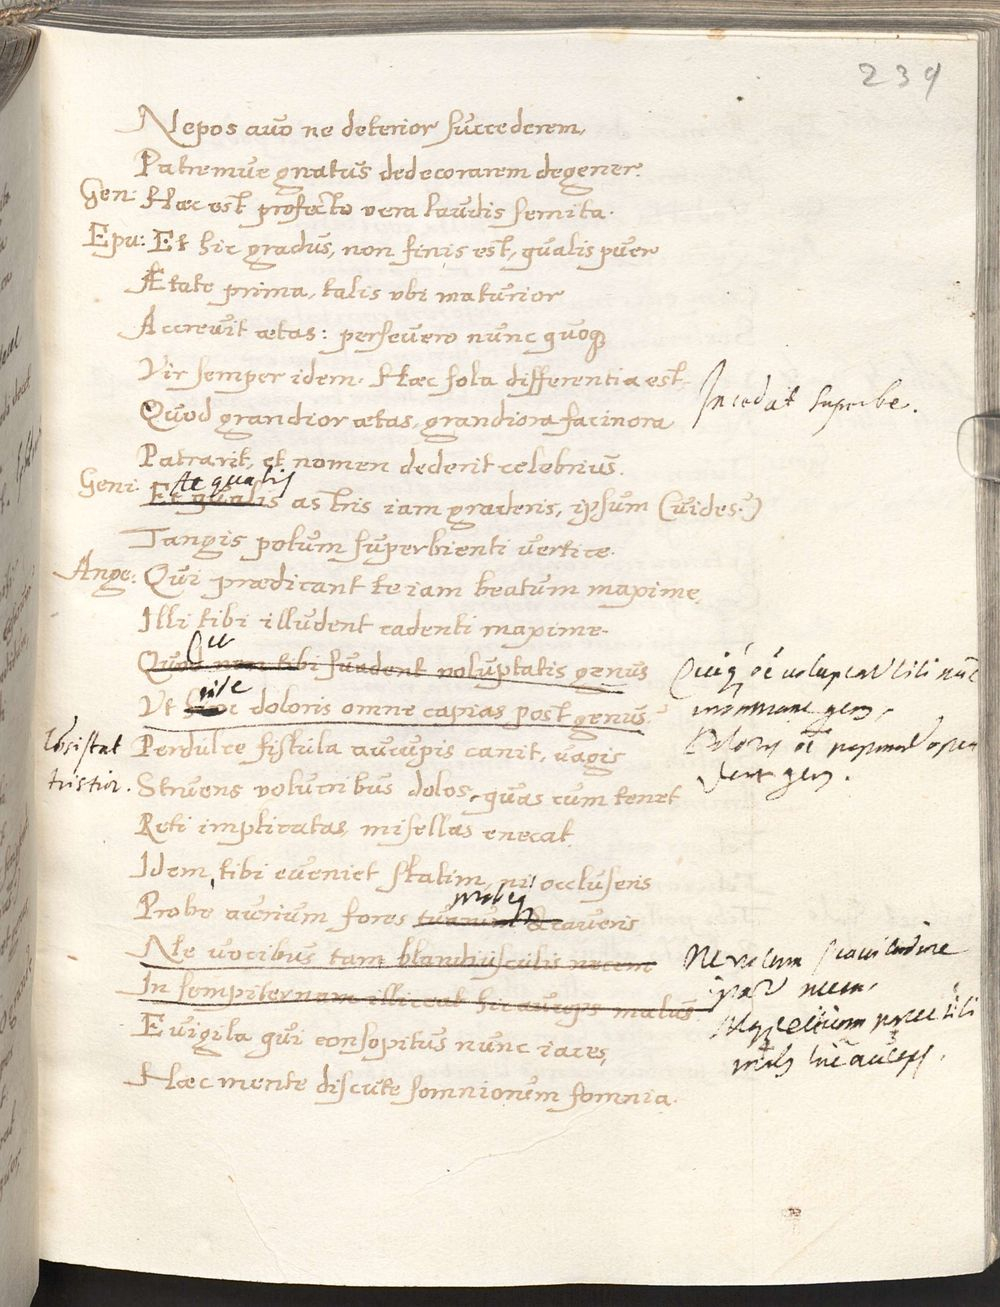 239
Nepos auo ne deterior succederem,
Patremue gnatus dedecorarem degener.
Gen: Hæc est profecto vera laudis semita.
Epu: Et hic gradus, non finis est, qualis puer
Ætate prima, talis vbi maturior
Accreuit ætas: perseuero nunc quoq
Vir semper idem. Hæc sola differentia est
Quod grandior ætas, grandiora facinora
Incedat superbe.
Patrarit, et nomen dederit celebrius.
Aequalis
Geni: Et qualis astris iam graderis, ipsum (uides?)
Tangis polum superbienti vertice.
Ange: Qui prædicant te iam beatum maxime
Illi tibi illudent cadenti maxime.
Quod non tibi suadent voluptatis genus
Vt doloris omne capias post genus.
Perdulce fistula aucupis canit, uagis
tristior.
Struens volucribus dolos, quas cum tenet
Reti implicatas misellas enecat,
Idem tibi eueniet statim, ni occluseris
Probe aurium fores tuarum & caueris
Ne vocibus tam blandiusculis necem
In sempiternam illiceat hic auceps malus.
Euigila qui consopitus nunc iaces,
Hæc mente discute somniorum somnia.